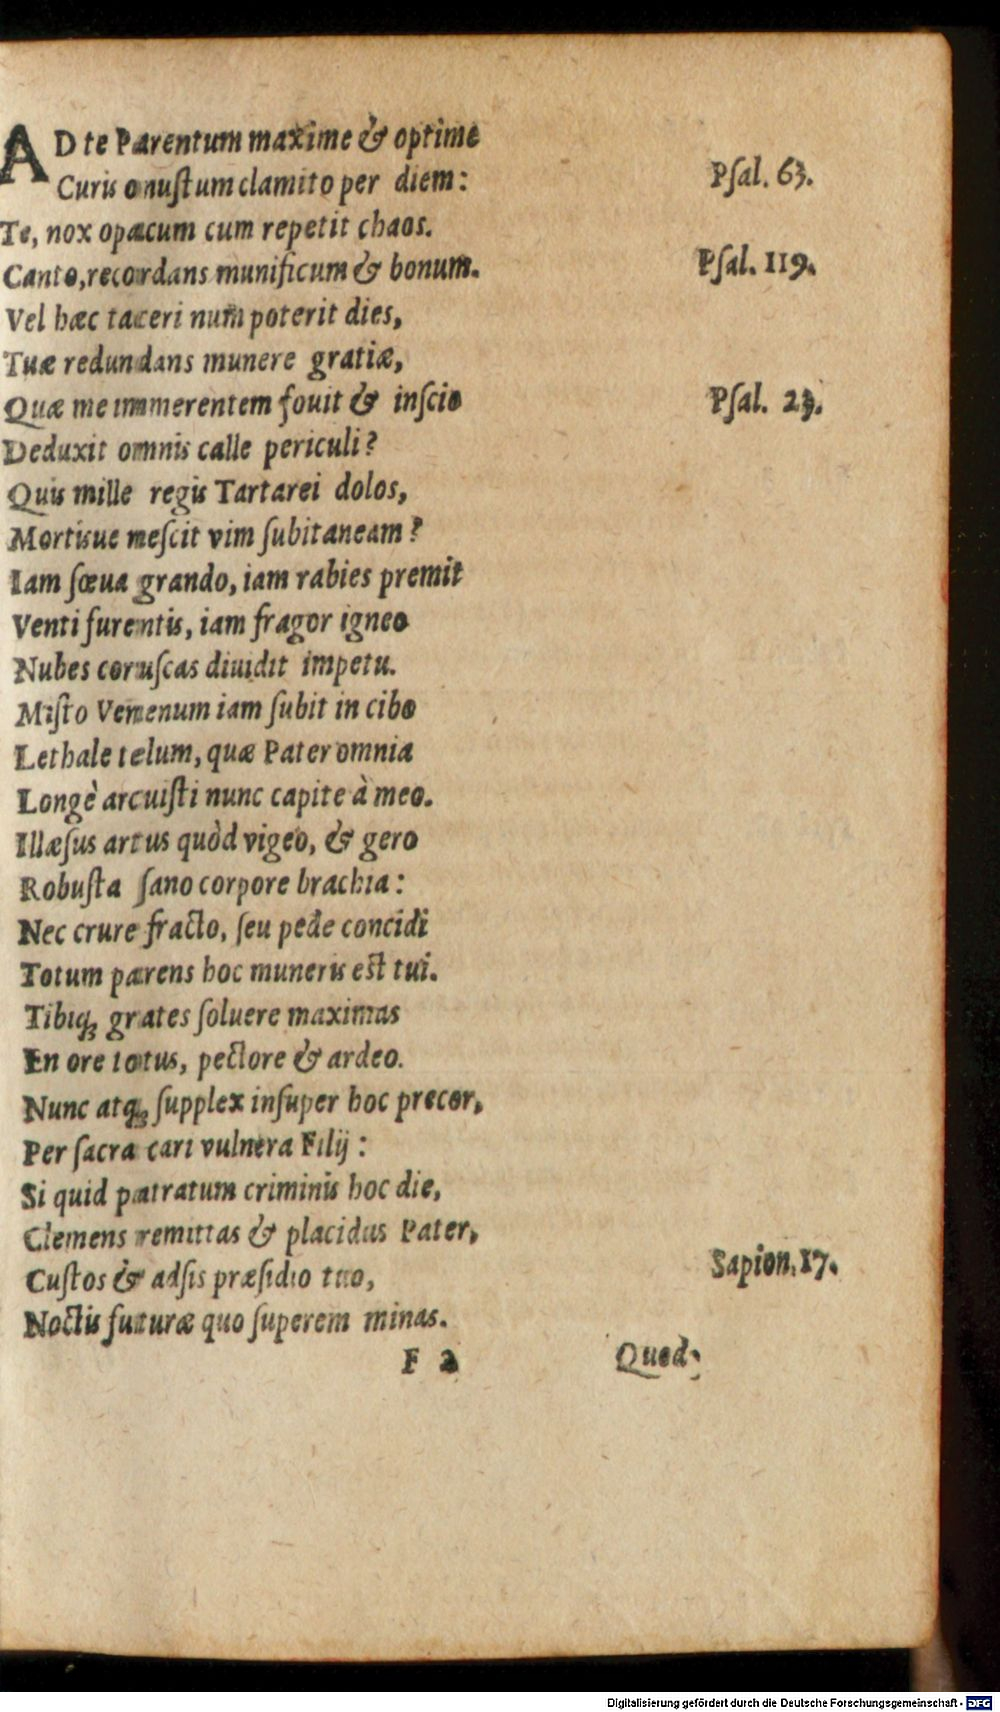 AD te Parentum maxime & optime
Curis onuſtum clamito per diem:
Pſal. 63.
Te, nox opacum cum repetit chaos.
Canto, recordans munificum & bonum.
Pſal. 119.
Vel hæc taceri num poterit dies,
Tuæ redundans munere gratiæ,
Quæ me immerentem fouit & inſcio
Pſal. 23.
Deduxit omnis calle periculi?
Quis mille regis Tartarei dolos,
Mortisue neſcit vim ſubitaneam?
Iam ſœua grando, iam rabies premit
Venti furentis, iam fragor igneo
Nubes coruſcas diuidit impetu.
Miſto Venenum iam ſubit in cibo
Lethale telum, quæ Pater omnia
Longè arcuiſti nunc capite à meo.
Illæſus artus quòd vigeo, & gero
Robuſta ſano corpore brachia:
Nec crure fracto, ſeu pede concidi
Totum parens hoc muneris eſt tui.
Tibiq; grates ſoluere maximas
En ore totus, pectore & ardeo.
Nunc atq; ſupplex inſuper hoc precor,
Per ſacra cari vulnera Filij:
Si quid patratum criminis hoc die,
Clemens remittas & placidus Pater,
Cuſtos & adſis præſidio tuo,
Sapien. 17.
Noctis futuræ quo ſuperem minas.
F 2
Quod
Digitalisierung gefördert durch die Deutsche Forschungsgemeinschaft - DFG